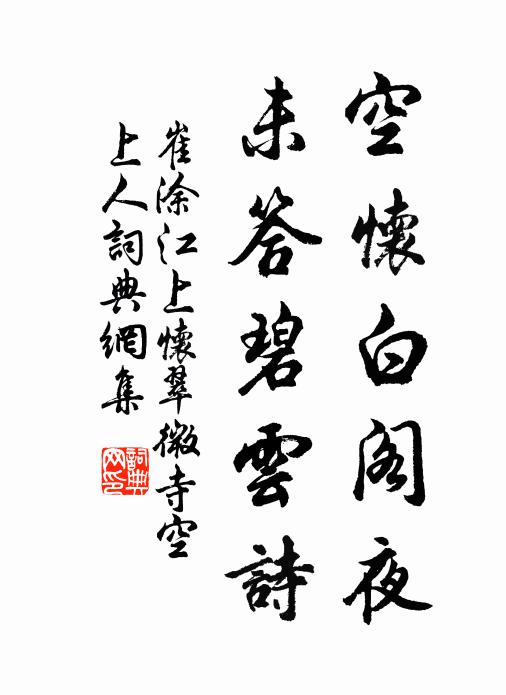 空懷白阁夜
未答碧雲詩
崔涂江上懷翠微寺空
上人詞典網集
詞典网印